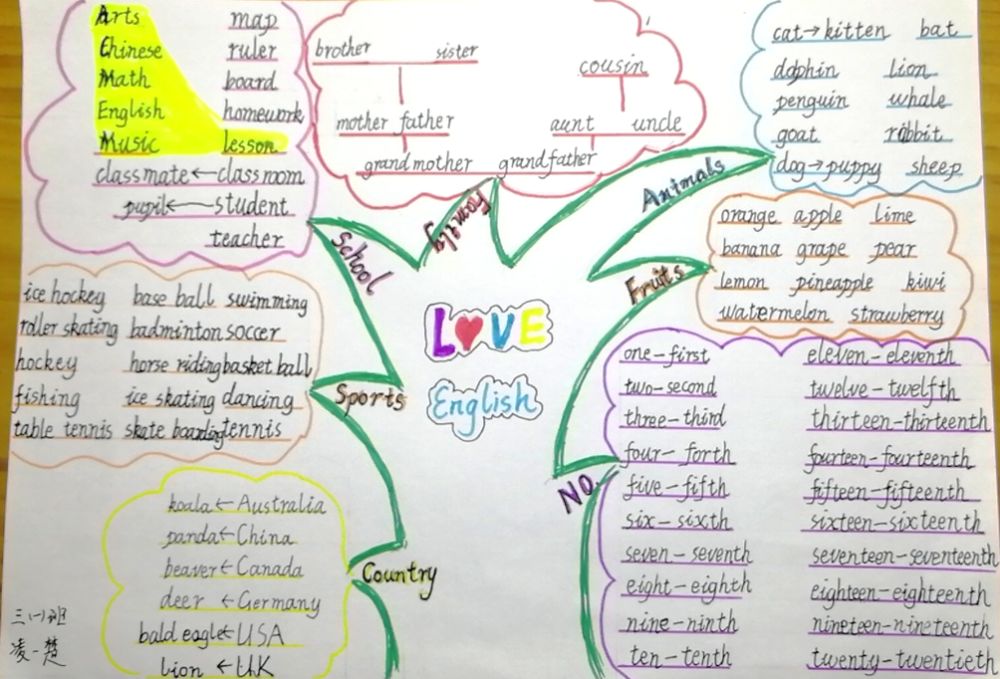 Arts map
Chinese ruler
Math board
English homework
Music lesson
classmate←classroom
pupil←student
teacher
School
brother sister
cousin
mother father
aunt uncle
grandmother grandfather
Family
cat→kitten bat
dophin lion
penguin whale
goat rabbit
dog→puppy sheep
Animals
orange apple lime
banana grape pear
lemon pineapple kiwi
watermelon strawberry
Fruits
LOVE
English
ice hockey base ball swimming
roller skating badminton soccer
hockey horse riding basket ball
fishing ice skating dancing
table tennis skate boarding tennis
Sports
one-first eleven-eleventh
two-second twelve-twelfth
three-third thirteen-thirteenth
four-forth fourteen-fourteenth
five-fifth fifteen-fifteenth
six-sixth sixteen-sixteenth
seven-seventh seventeen-seventeenth
eight-eighth eighteen-eighteenth
nine-ninth nineteen-nineteenth
ten-tenth twenty-twentieth
NO.
koala←Australia
panda←China
beaver←Canada
deer←Germany
bald eagle←USA
lion←UK
Country
三(一)班
凌一楚